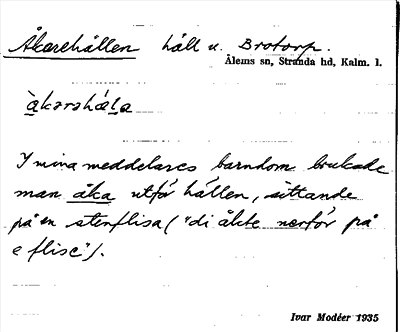 Åkarehällen häll u. Brotorp.
Ålems sn, Stranda hd, Kalm. l.
àkarshála
I mina meddelares barndom brukade
man åka utför hällen, sittande
på en stenflisa ("di åkte nerför på
e flise").
Ivar Modéer 1935